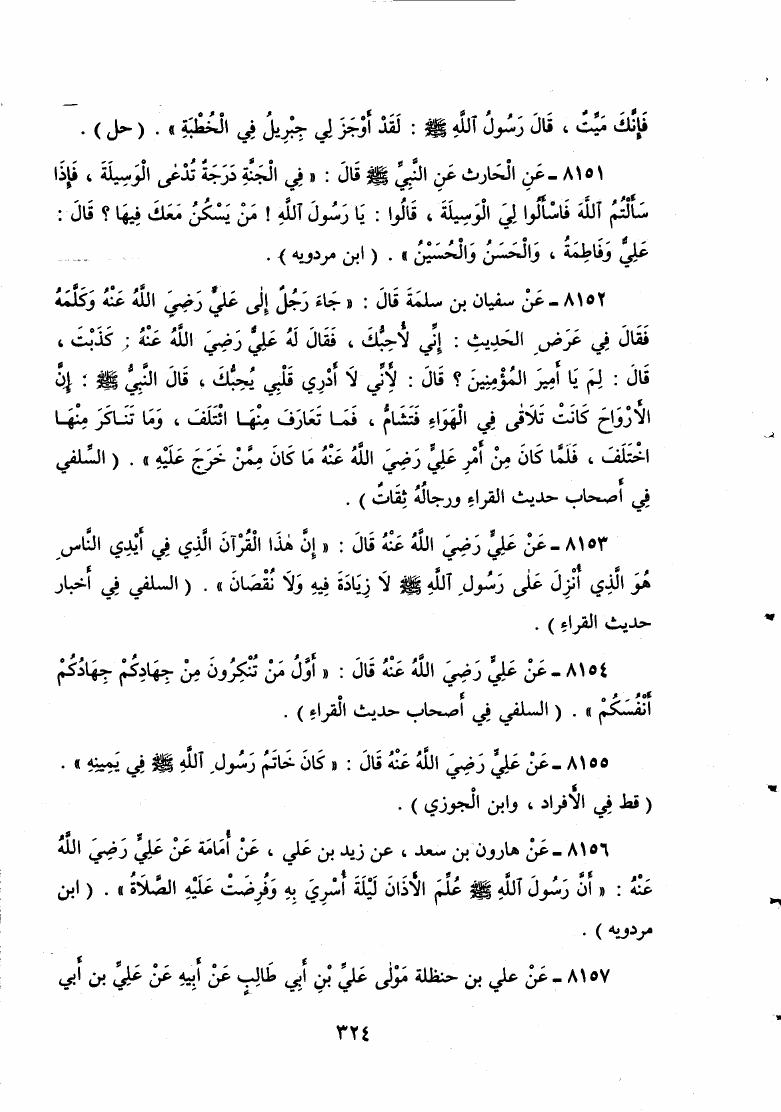 فَإِنَّكَ مَيِّتٌ ، قَالَ رَسُولُ ٱللَّهِ ﷺ : لَقَدْ أَوْجَزَ لِي جِبْرِيلُ فِي الْخُطْبَةِ » . ( حل ) .
٨١٥١ ـ عَنِ الْحَارث عَنِ النَّبِيِّ ﷺ قَالَ : « فِي الْجَنَّةِ دَرَجَةٌ تُدْعَى الْوَسِيلَةَ ، فَإِذَا
سَأَلْتُمُ ٱللَّهَ فَاسْأَلُوا لِيَ الْوَسِيلَةَ ، قَالُوا : يَا رَسُولَ ٱللَّهِ ! مَنْ يَسْكُنُ مَعَكَ فِيهَا ؟ قَالَ :
عَلِيٌّ وَفَاطِمَةُ ، وَالْحَسَنُ وَالْحُسَيْنُ » . ( ابن مردويه ) .
٨١٥٢ ـ عَنْ سفيان بن سلمَةَ قَالَ : « جَاءَ رَجُلٌ إِلَى عَلِيٍّ رَضِيَ اللَّهُ عَنْهُ وَكَلَّمَهُ
فَقَالَ فِي عَرَضِ الحَدِيثِ : إِنِّي لَأُحِبُّكَ ، فَقَالَ لَهُ عَلِيٌّ رَضِيَ اللَّهُ عَنْهُ : كَذَبْتَ ،
قَالَ : لِمَ يَا أَمِيرَ المُؤْمِنِينَ ؟ قَالَ : لِأَنِّي لَا أَدْرِي قَلْبِي يُحِبُّكَ ، قَالَ النَّبِيُّ ﷺ : إِنَّ
الأَرْوَاحَ كَانَتْ تَلَاقَى فِي الْهَوَاءِ فَتَشَامُّ ، فَمَا تَعَارَفَ مِنْهَا ائْتَلَفَ ، وَمَا تَنَاكَرَ مِنْهَا
اخْتَلَفَ ، فَلَمَّا كَانَ مِنْ أَمْرِ عَلِيٍّ رَضِيَ اللَّهُ عَنْهُ مَا كَانَ مِمَّنْ خَرَجَ عَلَيْهِ » . ( السِّلفي
فِي أصحاب حديث القراءِ ورجالُهُ ثِقَاتٌ ) .
٨١٥٣ ـ عَنْ عَلِيٍّ رَضِيَ اللَّهُ عَنْهُ قَالَ : « إِنَّ هٰذَا الْقُرْآنَ الَّذِي فِي أَيْدِي النَّاسِ
هُوَ الَّذِي أُنْزِلَ عَلَى رَسُولِ ٱللَّهِ ﷺ لَا زِيَادَةَ فِيهِ وَلَا نُقْصَانَ » . ( السلفي فِي أخبار
حديث القراءِ ) .
٨١٥٤ ـ عَنْ عَلِيٍّ رَضِيَ اللَّهُ عَنْهُ قَالَ : « أَوَّلُ مَنْ تُنْكِرُونَ مِنْ جِهَادِكُمْ جِهَادُكُمْ
أَنْفُسَكُمْ » . ( السلفي فِي أصحاب حديث الْقراءِ ) .
٨١٥٥ ـ عَنْ عَلِيٍّ رَضِيَ اللَّهُ عَنْهُ قَالَ : « كَانَ خَاتَمُ رَسُولِ ٱللَّهِ ﷺ فِي يَمِينِهِ » .
( قط فِي الأفراد ، وابن الْجوزي ) .
٨١٥٦ ـ عَنْ هارون بن سعد ، عن زيد بن علي ، عَنْ أُمَامَة عَنْ عَلِيٍّ رَضِيَ اللَّهُ
عَنْهُ : « أَنَّ رَسُولَ ٱللَّهِ ﷺ عُلِّمَ الأَذَانَ لَيْلَةَ أُسْرِيَ بِهِ وَفُرِضَتْ عَلَيْهِ الصَّلَاةُ » . ( ابن
مردويه ) .
٨١٥٧ ـ عَنْ علي بن حنظلة مَوْلَى عَلِيِّ بْنِ أَبِي طَالِبٍ عَنْ أَبِيهِ عَنْ عَلِيِّ بن أَبي
٣٢٤